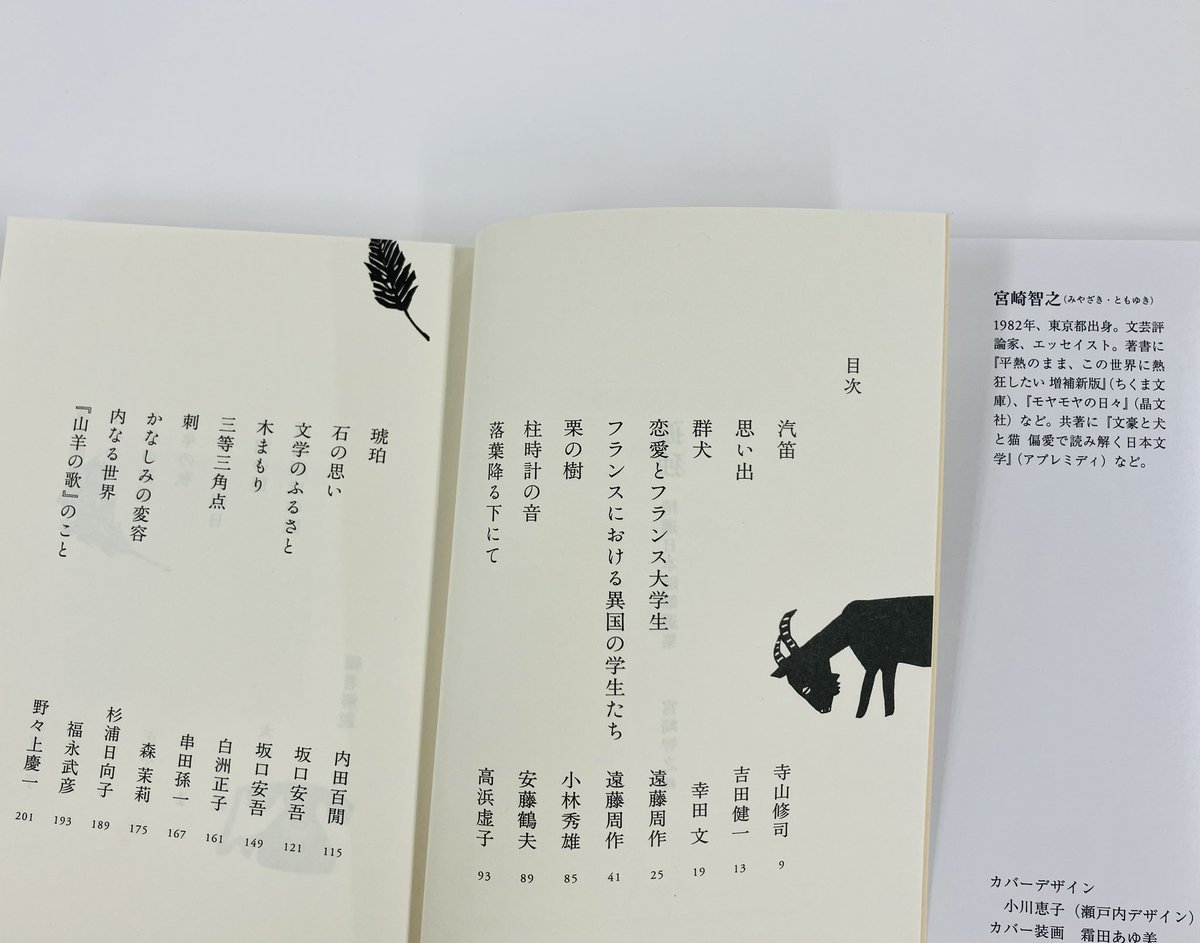 目次
汽笛 寺山修司 9
思い出 吉田健一 13
群犬 幸田 文 19
恋愛とフランス大学生 遠藤周作 25
フランスにおける異国の学生たち 遠藤周作 41
栗の樹 小林秀雄 85
柱時計の音 安藤鶴夫 89
落葉降る下にて 高浜虚子 93
琥珀 内田百閒 115
石の思い 坂口安吾 121
文学のふるさと 坂口安吾 149
木まもり 白洲正子 161
三等三角点 串田孫一 167
刺 森 茉莉 175
かなしみの変容 杉浦日向子 189
内なる世界 福永武彦 193
『山羊の歌』のこと 野々上慶一 201
宮崎智之(みやざき・ともゆき)
1982年、東京都出身。文芸評
論家、エッセイスト。著書に
『平熱のまま、この世界に熱
狂したい 増補新版』(ちくま文
庫)、『モヤモヤの日々』(晶文
社)など。共著に『文豪と犬
と猫 偏愛で読み解く日本文
学』(アプレミディ)など。
カバーデザイン
小川恵子(瀬戸内デザイン)
カバー装画 霜田あゆ美